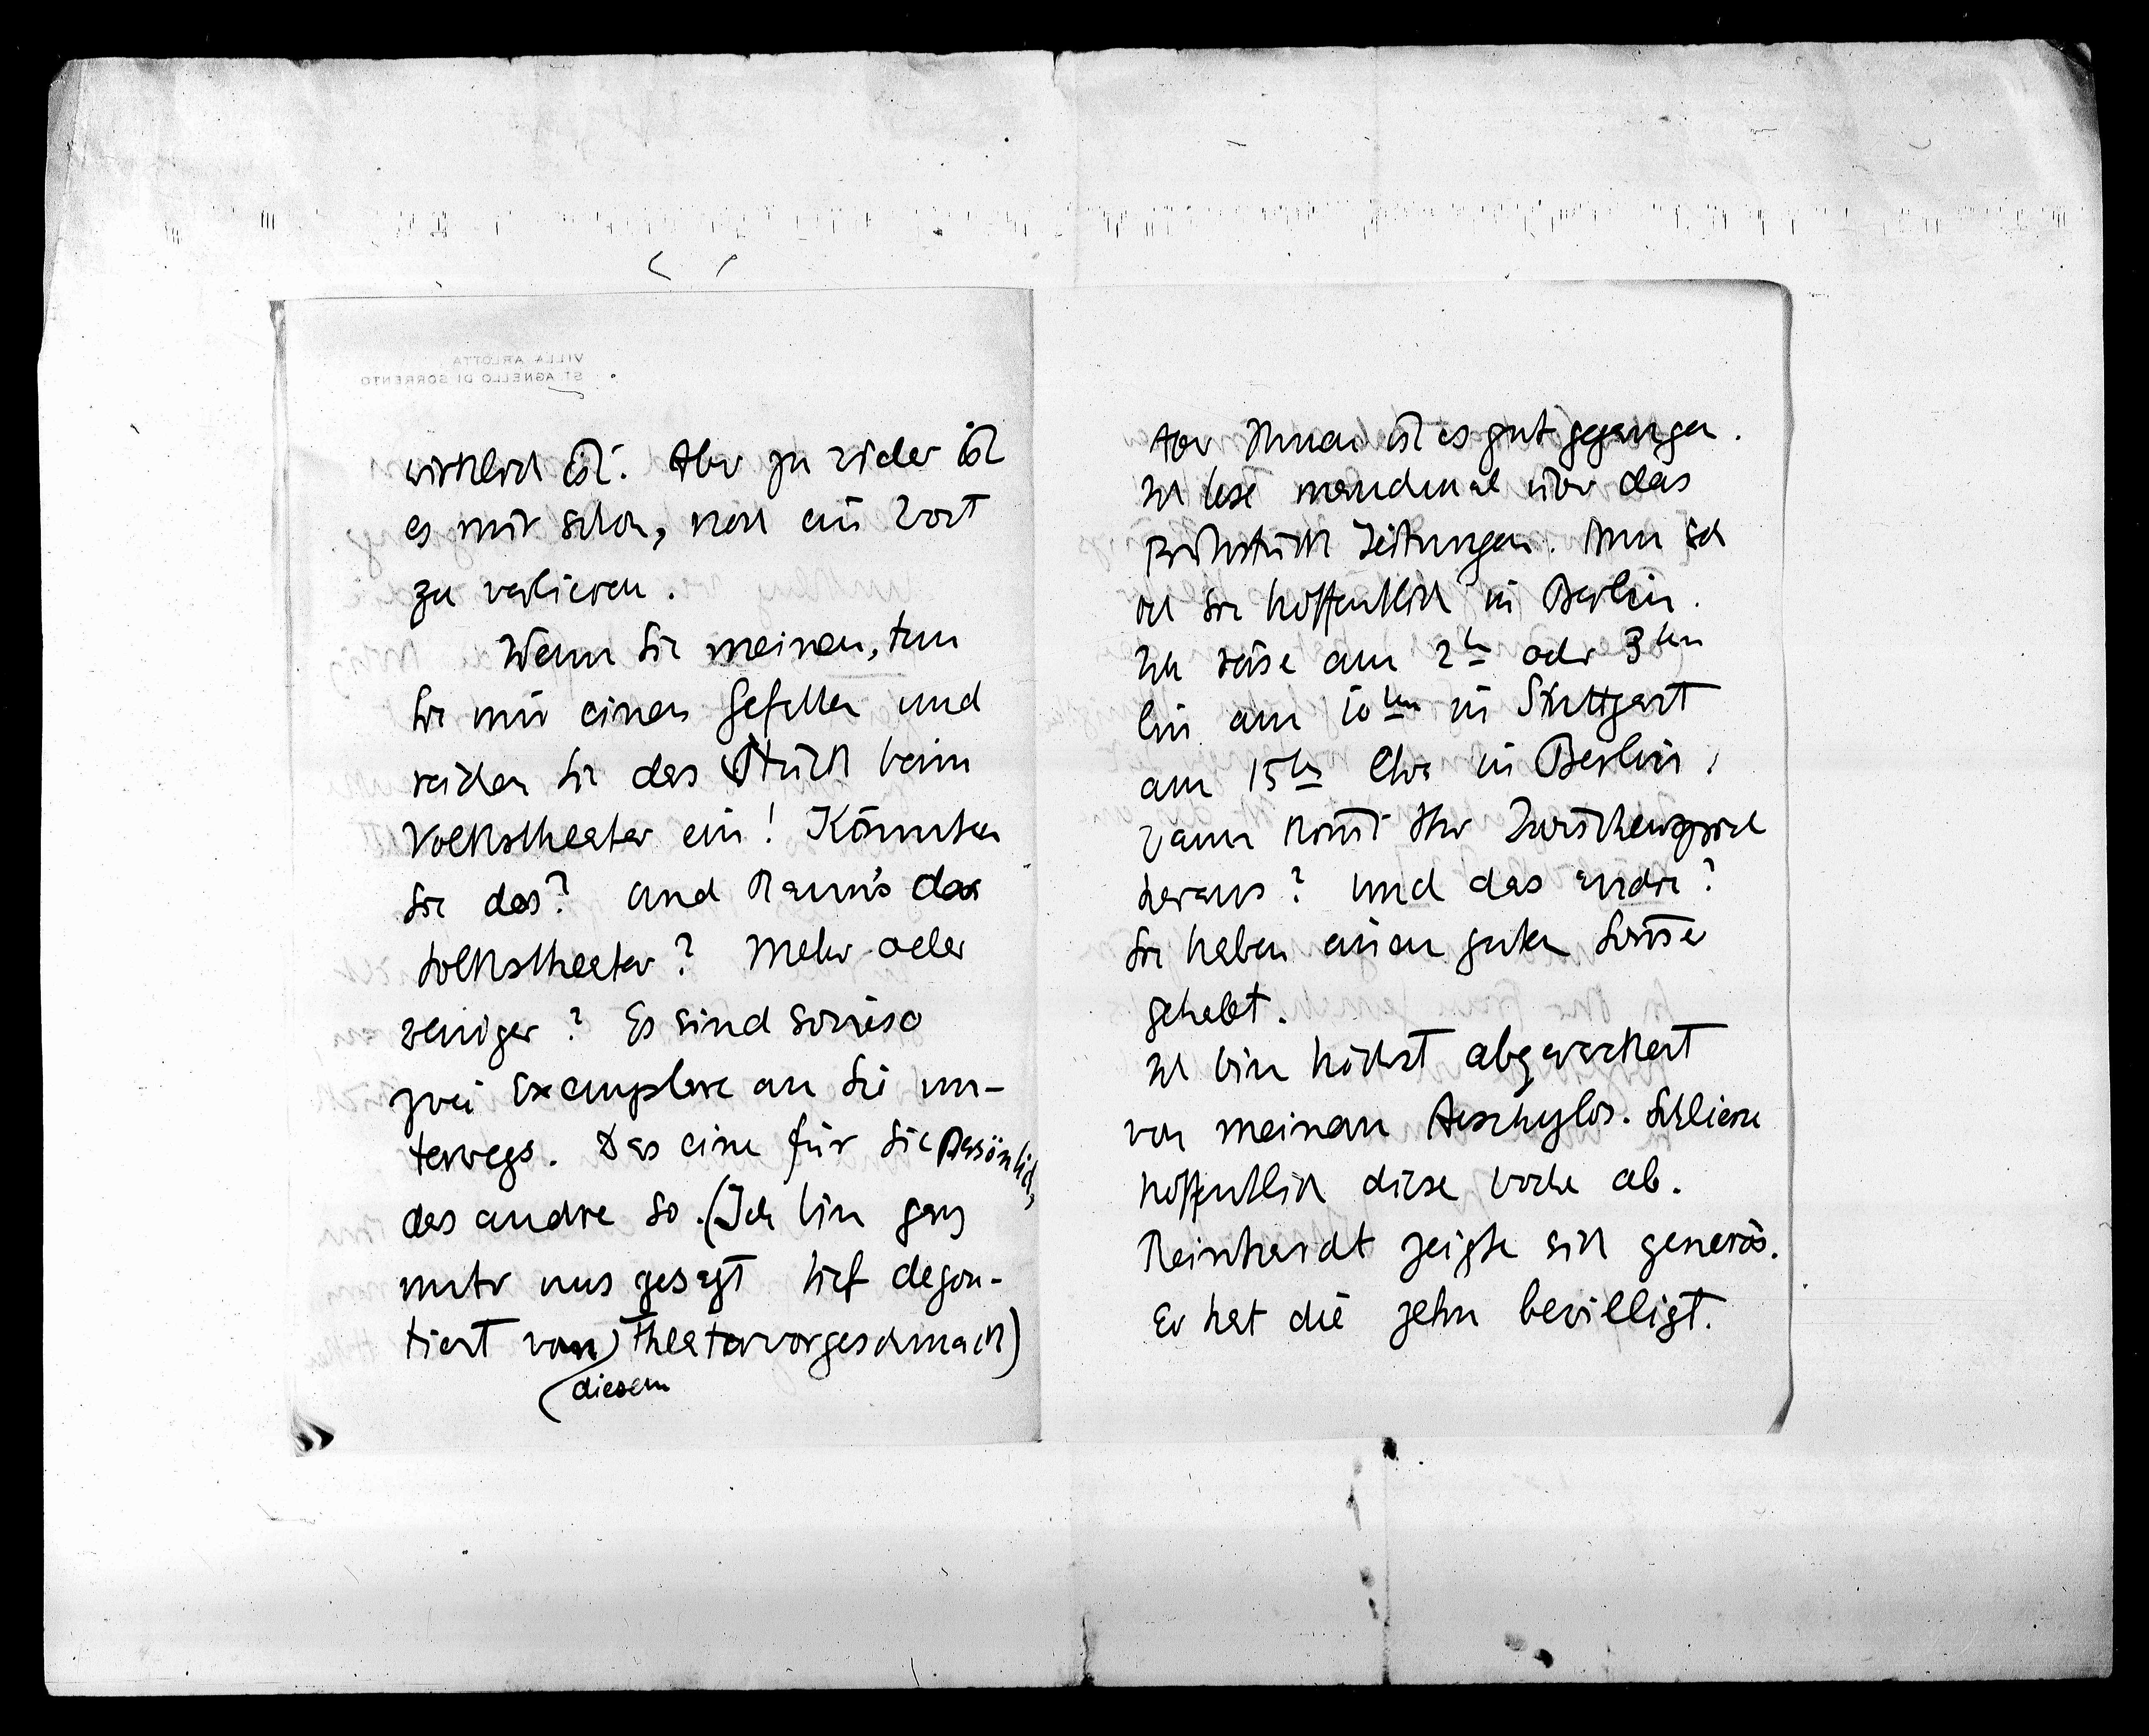 VILLA ARLOTTA
ST. AGNELLO DI SORRENTO
wirklich ist. Aber zu wider ist
es mir schon, noch ein Wort
zu verlieren.
Wenn Sie meinen, tun
Sie mir einen Gefallen und
reichen Sie das Stück beim
Volkstheater ein! Könnten
Sie das? Und kann's das
Volkstheater? Mehr oder
weniger? Es sind sowieso
zwei Exemplare an Sie un-
terwegs. Das eine für Sie persönlich,
das andre so. (Ich bin ganz
unter uns gesagt tief degou-
tiert von diesem Theatervorgeschmack)
Aber Ihnen ist es gut gegangen.
Ich lese manchmal über das
Frühstück Zeitungen. Nun seh
ich Sie hoffentlich in Berlin.
Ich reise am 2ten oder 3ten
bin am 10ten in Stuttgart
am 15ten etwa in Berlin.
Wann kommt Ihr Zwischenspiel
heraus? Und das andre?
Sie haben einen guten Sommer
gehabt.
Ich bin höchst abgerackert
von meinem Aeschylos. Schliesse
hoffentlich diese Woche ab.
Reinhardt zeigte sich generös.
Er hat die zehn bewilligt.